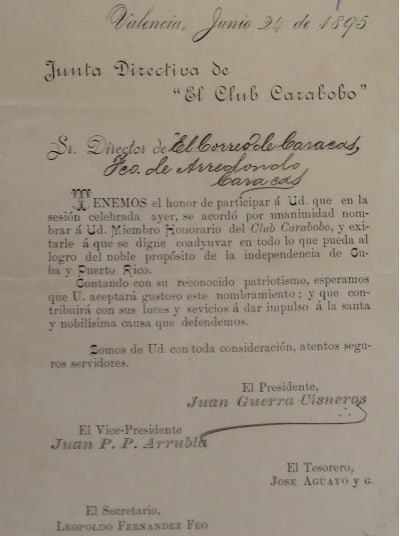 Valencia, Junio 24 de 1895
Junta Directiva de
"El Club Carabobo"
Sr. Director de "El Correo de Caracas,
Fco. de Arredondo
Caracas
TENEMOS el honor de participar á Ud. que en la
sesión celebrada ayer, se acordó por unanimidad nom-
brar á Ud. Miembro Honorario del Club Carabobo, y exi-
tarle á que se digne coadyuvar en todo lo que pueda al
logro del noble propósito de la independencia de Cu-
ba y Puerto Rico.
Contando con su reconocido patriotismo, esperamos
que U. aceptará gustoso este nombramiento; y que con-
tribuirá con sus luces y sevicios á dar impulso á la santa
y nobilísima causa que defendemos.
Somos de Ud. con toda consideración, atentos segu-
ros servidores.
El Presidente,
Juan Guerra Cisneros
El Vice-Presidente
Juan P. P. Arrubla
El Tesorero,
JOSE AGUAYO y G.
El Secretario,
LEOPOLDO FERNANDEZ FEO